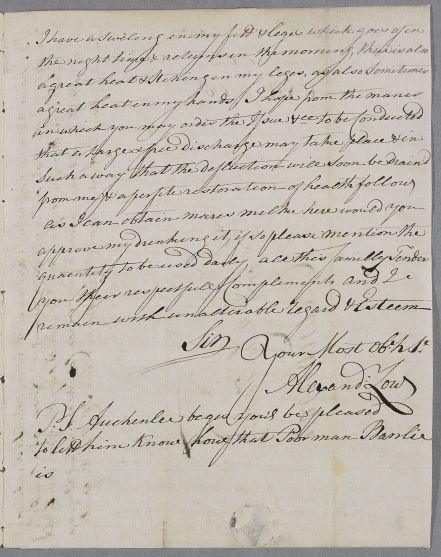 I have a sweling in my feet & legs which goes of in
the night time & returns in the morning, there is also
a great heat & itching in my leges, as also Sometimes
a great heat in my hands / I hope from the maner
in which you may order the Issue &ce to be conducted
that a Large & free discharge may take place & in
Such a way that the defluction will soon be draind
from me & a perfite restoration of health follow
as I can obtain mares milke here would you
approve my drinking it, if so please mention the
quantity to be used daily all the familly Tender
you their respectfull Complements and I
remain with unalterable regard & Esteem
Sir
Your Most Obt. St.
Alexandr: Low
P.S. Auchenlee begs you'd be pleased
to lett him Know how that Poor man
is